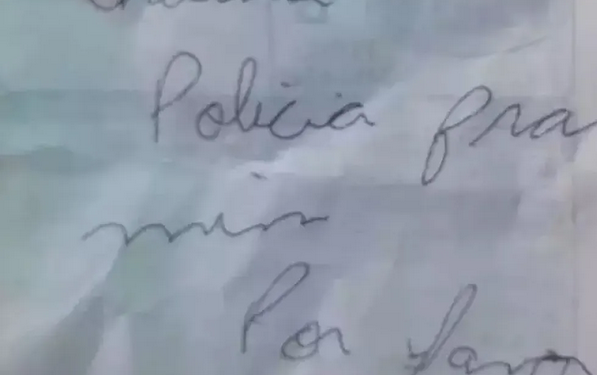 Policia pra
min
Por favor